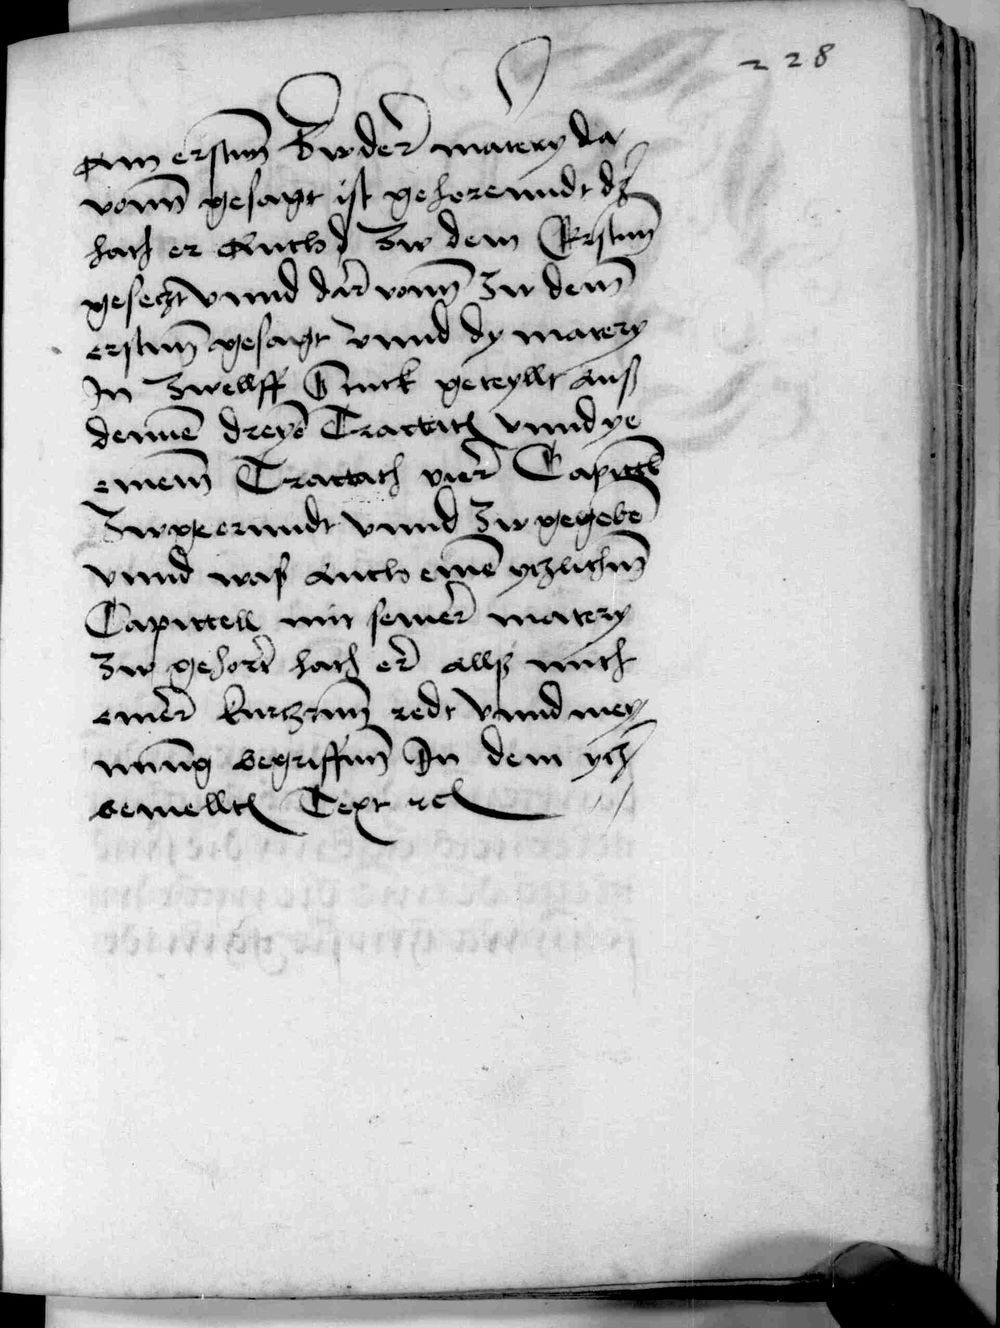 228
Am ersten Zw der matery da
vonn gesagt ist gehorenndt dz
hatt er Auch Zw dem Ersten
gesetzt vnnd dar vonn Zw dem
ersten gesagt vnnd dy matery
In Zwelff Stuck geteyllt auß
dennen dreyen Tractatt vnnd ye
einem Tractatt vier Capittel
Zwgeornndt vnnd Zwgegeben
vnnd was auch einem ytzlichen
Capittell mit seiner matery
Zw gehort hatt er alls mitt
einer kurtzenn redt vnnd mey
nung begriffenn In dem ytz
bemelltt Text etc